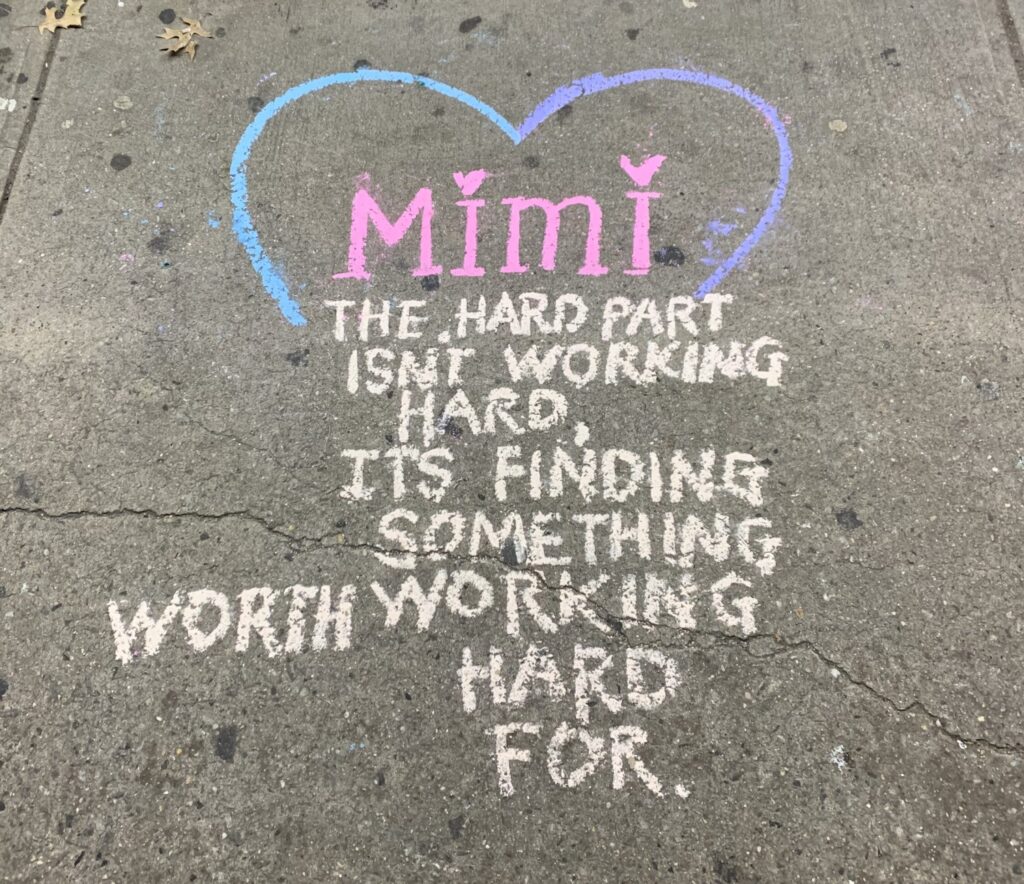 Mimi
THE HARD PART
ISNT WORKING
HARD,
ITS FINDING
SOMETHING
WORTH WORKING
HARD
FOR.